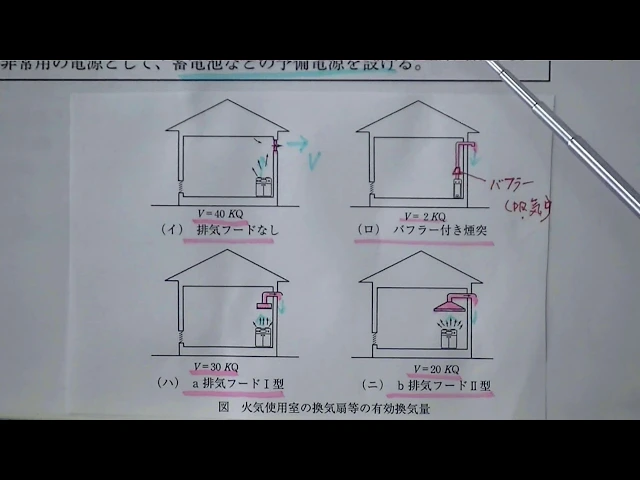 非常用の電源として、蓄電池などの予備電源を設ける。
V
V=40 KQ
(イ) 排気フードなし
バフラー
V=2KQ
(ロ) バフラー付き煙突
V=30 KQ
(ハ) a 排気フードⅠ型
V=20 KQ
(ニ) b 排気フードⅡ型
図 火気使用室の換気扇等の有効換気量